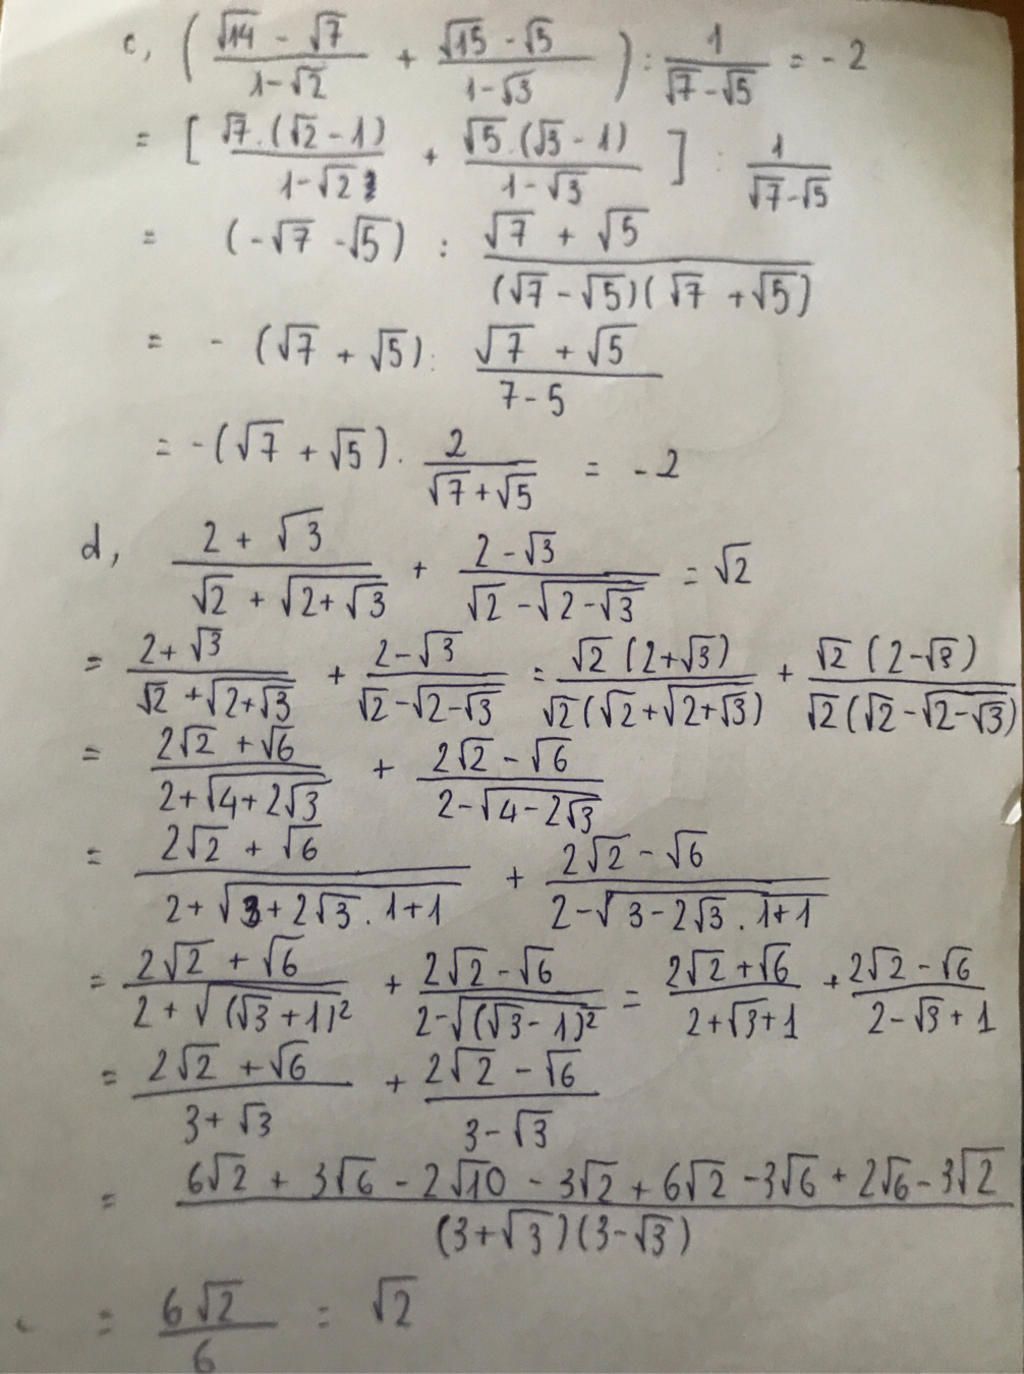 c, ( (√14 - √7)/(1-√2) + (√15 - √5)/(1-√3) ) : 1/(√7-√5) = - 2
= [ √7.(√2 - 1)/(1-√2) + √5.(√3 - 1)/(1-√3) ] : 1/(√7-√5)
= (-√7 -√5) : (√7 + √5)/((√7-√5)(√7 +√5))
= - (√7 + √5) : (√7 + √5)/(7-5)
= -(√7 + √5) . 2/(√7+√5) = -2
d, (2 + √3)/(√2 + √(2+√3)) + (2-√3)/(√2 -√(2-√3)) = √2
= (2+√3)/(√2 +√(2+√3)) + (2-√3)/(√2-√(2-√3)) = √2 (2+√3)/(√2(√2+√(2+√3))) + √2 (2-√3)/(√2(√2-√(2-√3)))
= (2√2 +√6)/(2+√(4+2√3)) + (2√2 -√6)/(2-√(4-2√3))
= (2√2 + √6)/(2+√(3+2√3.1+1)) + (2√2 -√6)/(2-√(3-2√3.1+1))
= (2√2 + √6)/(2+√((√3+1)²)) + (2√2 -√6)/(2-√((√3-1)²)) = (2√2 +√6)/(2+√3+1) + (2√2 -√6)/(2-√3+1)
= (2√2 +√6)/(3+√3) + (2√2 -√6)/(3-√3)
= (6√2 + 3√6 - 2√10 - 3√2 + 6√2 -3√6 + 2√6 -3√2)/((3+√3)(3-√3))
= 6√2/6 = √2